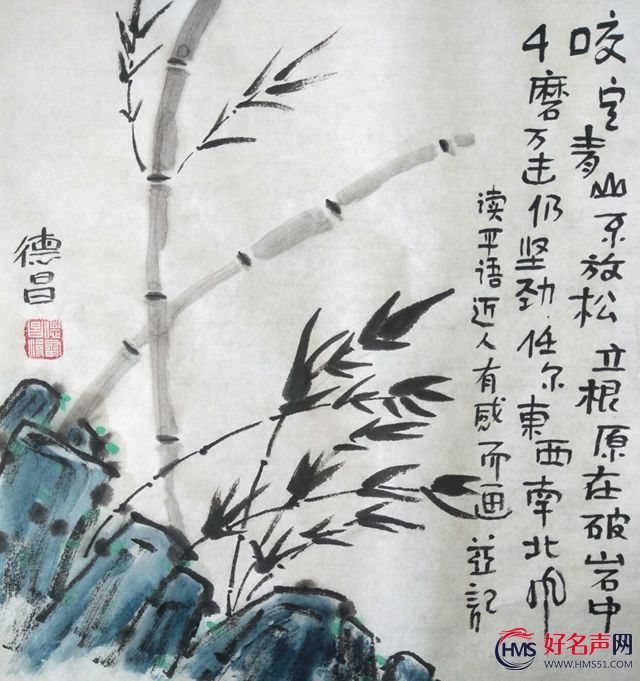 咬定青山不放松 立根原在破岩中
千磨万击仍坚劲.任尔東西南北风
读平语近人有感而画 並記
德昌
HMS 好名声网
WWW.HMS51.COM